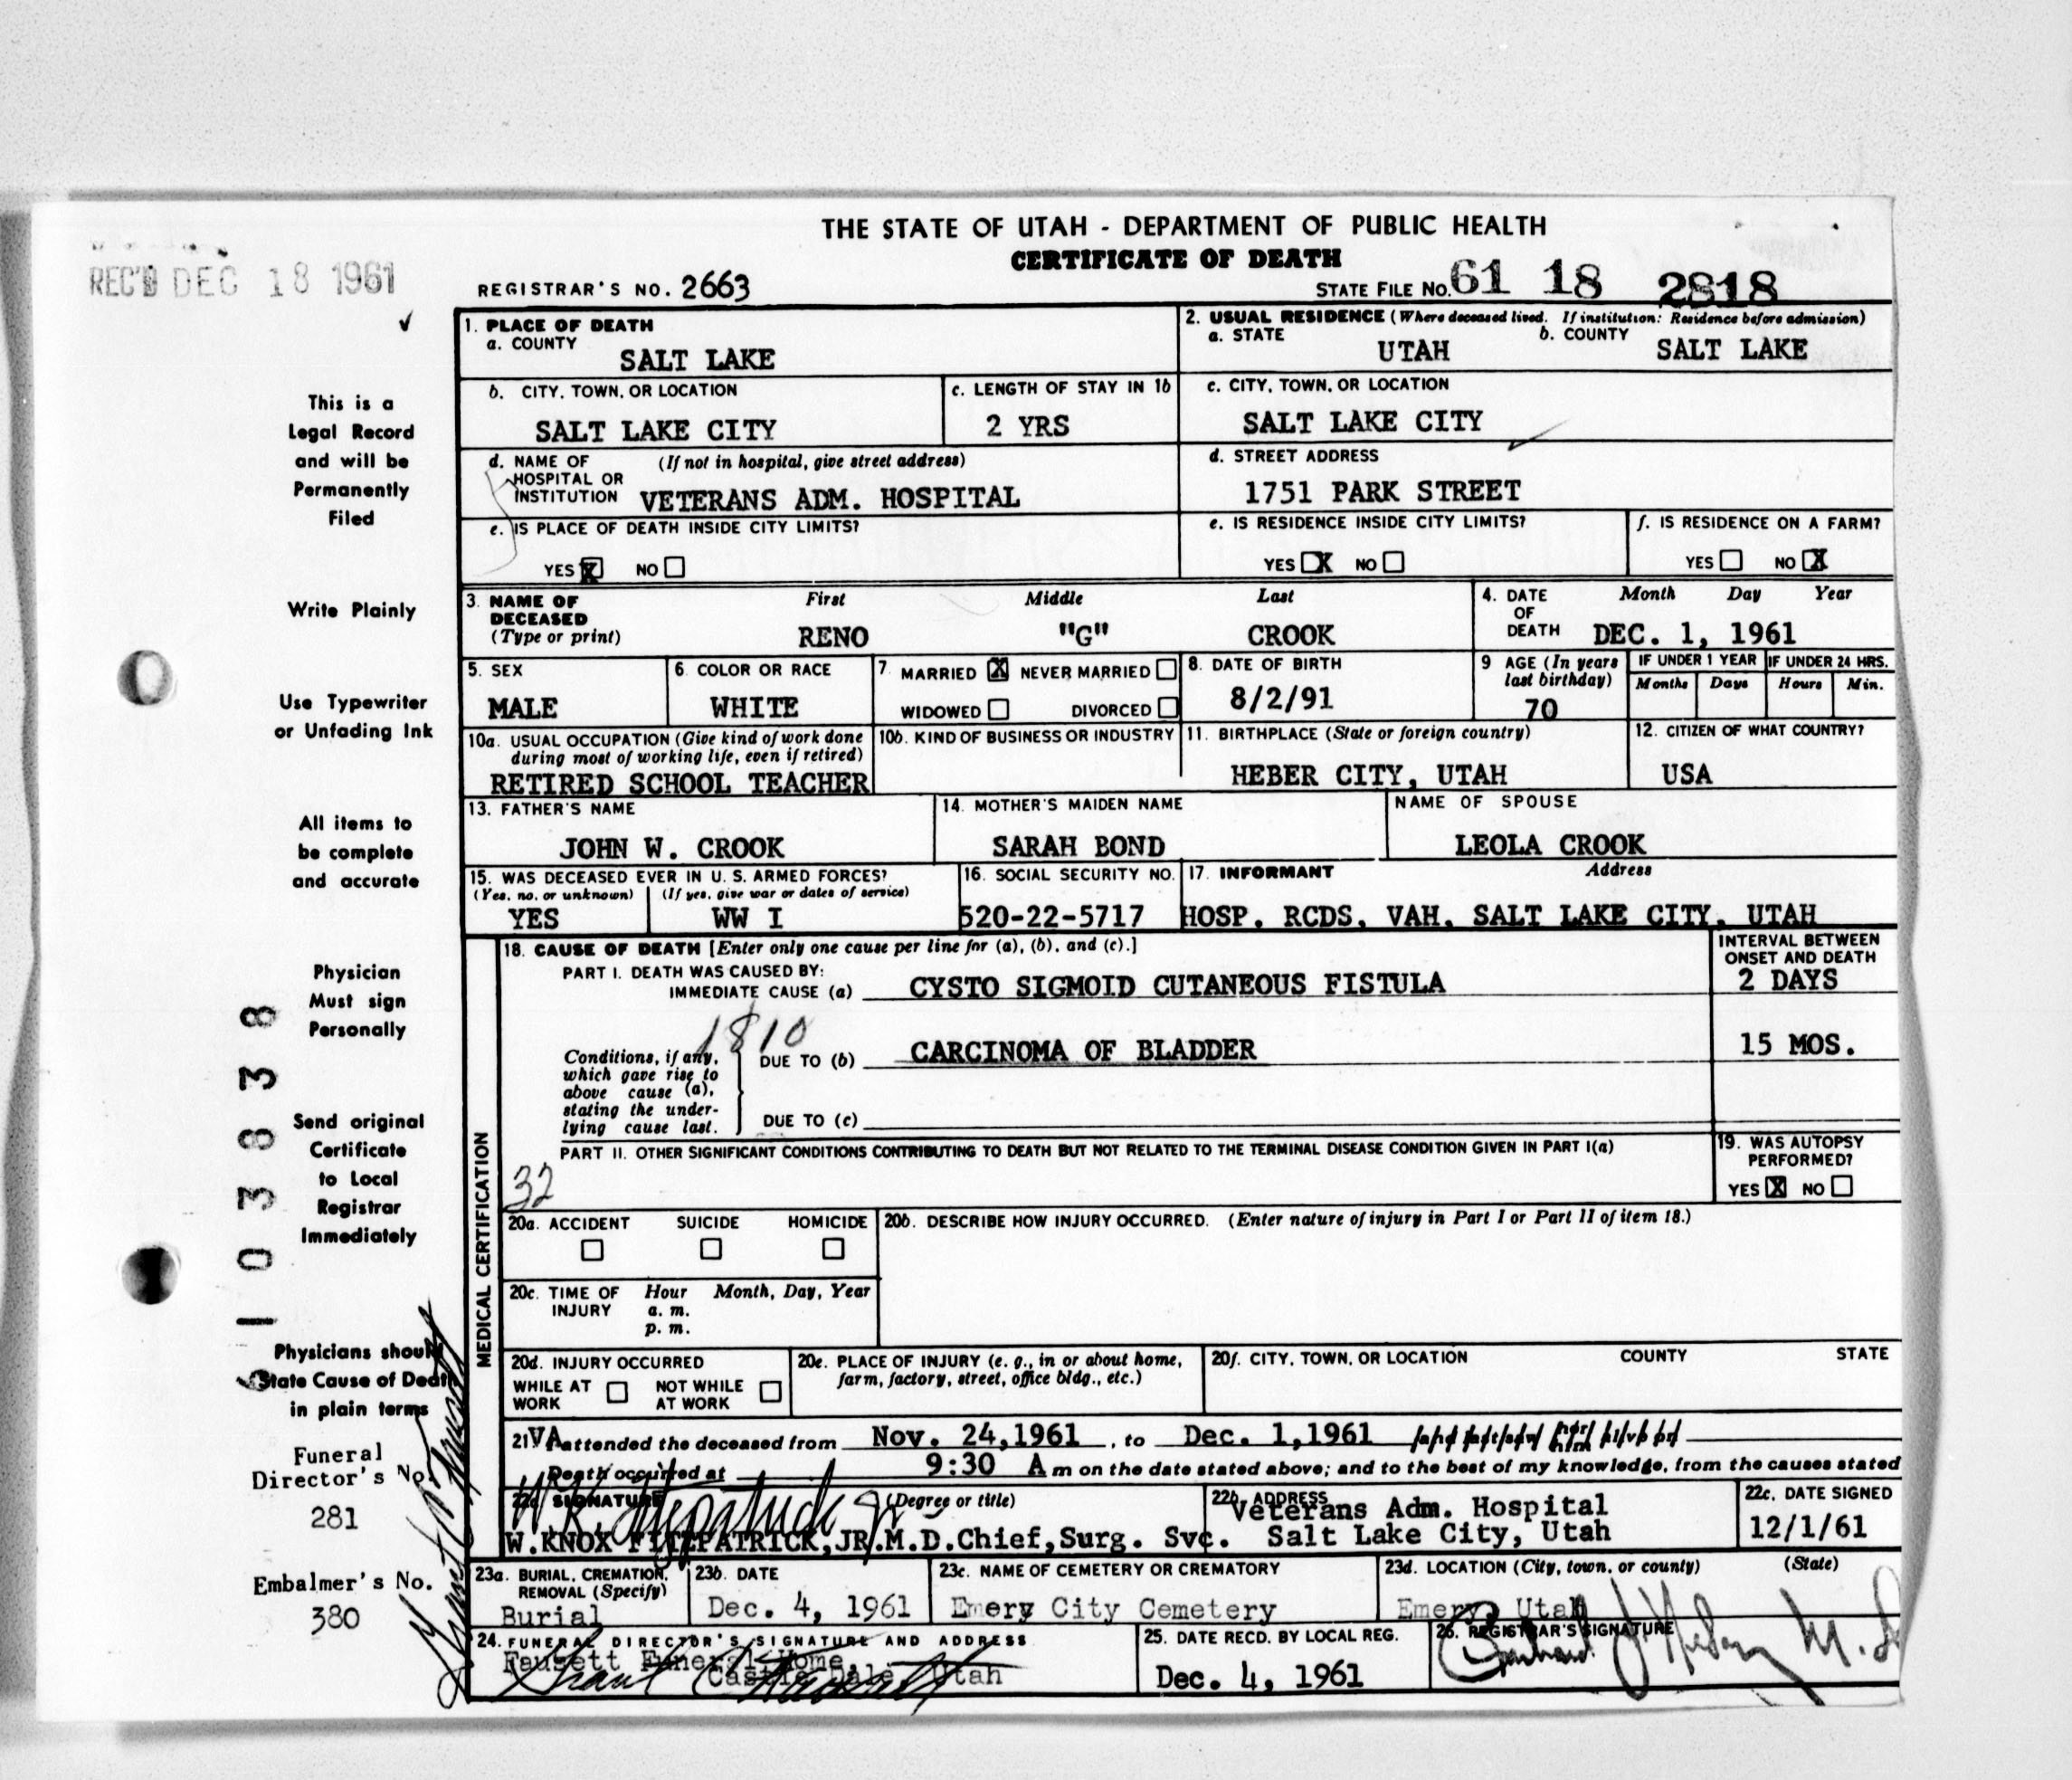 THE STATE OF UTAH - DEPARTMENT OF PUBLIC HEALTH
CERTIFICATE OF DEATH
REC'D DEC 18 1961
REGISTRAR'S NO. 2663
STATE FILE NO. 61 18 2818
1. PLACE OF DEATH
a. COUNTY
SALT LAKE
2. USUAL RESIDENCE (Where deceased lived. If institution: Residence before admission)
a. STATE UTAH b. COUNTY SALT LAKE
b. CITY, TOWN, OR LOCATION
SALT LAKE CITY
c. LENGTH OF STAY IN 1b
2 YRS
c. CITY, TOWN, OR LOCATION
SALT LAKE CITY
d. NAME OF HOSPITAL OR INSTITUTION (If not in hospital, give street address)
VETERANS ADM. HOSPITAL
d. STREET ADDRESS
1751 PARK STREET
e. IS PLACE OF DEATH INSIDE CITY LIMITS?
YES X NO
e. IS RESIDENCE INSIDE CITY LIMITS?
YES X NO
f. IS RESIDENCE ON A FARM?
YES NO X
3. NAME OF DECEASED (Type or print)
First Middle Last
RENO "G" CROOK
4. DATE OF DEATH
Month Day Year
DEC. 1, 1961
5. SEX
MALE
6. COLOR OR RACE
WHITE
7. MARRIED X NEVER MARRIED
WIDOWED DIVORCED
8. DATE OF BIRTH
8/2/91
9 AGE (In years last birthday)
70
IF UNDER 1 YEAR IF UNDER 24 HRS.
Months Days Hours Min.
10a. USUAL OCCUPATION (Give kind of work done during most of working life, even if retired)
RETIRED SCHOOL TEACHER
10b. KIND OF BUSINESS OR INDUSTRY
11. BIRTHPLACE (State or foreign country)
HEBER CITY, UTAH
12. CITIZEN OF WHAT COUNTRY?
USA
13. FATHER'S NAME
JOHN W. CROOK
14. MOTHER'S MAIDEN NAME
SARAH BOND
NAME OF SPOUSE
LEOLA CROOK
15. WAS DECEASED EVER IN U. S. ARMED FORCES?
(Yes, no, or unknown) (If yes, give war or dates of service)
YES WW I
16. SOCIAL SECURITY NO.
520-22-5717
17. INFORMANT Address
HOSP. RCDS, VAH, SALT LAKE CITY, UTAH
MEDICAL CERTIFICATION
18. CAUSE OF DEATH [Enter only one cause per line for (a), (b), and (c).]
INTERVAL BETWEEN ONSET AND DEATH
PART I. DEATH WAS CAUSED BY:
IMMEDIATE CAUSE (a) CYSTO SIGMOID CUTANEOUS FISTULA 2 DAYS
1810
Conditions, if any, which gave rise to above cause (a), stating the underlying cause last.
DUE TO (b) CARCINOMA OF BLADDER 15 MOS.
DUE TO (c)
PART II. OTHER SIGNIFICANT CONDITIONS CONTRIBUTING TO DEATH BUT NOT RELATED TO THE TERMINAL DISEASE CONDITION GIVEN IN PART I(a)
32
19. WAS AUTOPSY PERFORMED?
YES X NO
20a. ACCIDENT SUICIDE HOMICIDE
20b. DESCRIBE HOW INJURY OCCURRED. (Enter nature of injury in Part I or Part II of item 18.)
20c. TIME OF INJURY Hour Month, Day, Year
a. m.
p. m.
20d. INJURY OCCURRED
WHILE AT WORK NOT WHILE AT WORK
20e. PLACE OF INJURY (e. g., in or about home, farm, factory, street, office bldg., etc.)
20f. CITY, TOWN, OR LOCATION COUNTY STATE
21 VA attended the deceased from Nov. 24,1961, to Dec. 1,1961
Death occurred at 9:30 A m on the date stated above; and to the best of my knowledge, from the causes stated
22a SIGNATURE (Degree or title)
W.K. Fitzpatrick Jr
W.KNOX FITZPATRICK,JR.M.D.Chief,Surg. Svc.
22b. ADDRESS
Veterans Adm. Hospital
Salt Lake City, Utah
22c. DATE SIGNED
12/1/61
23a. BURIAL, CREMATION, REMOVAL (Specify)
Burial
23b. DATE
Dec. 4, 1961
23c. NAME OF CEMETERY OR CREMATORY
Emery City Cemetery
23d. LOCATION (City, town, or county) (State)
Emery, Utah
24. FUNERAL DIRECTOR'S SIGNATURE AND ADDRESS
Fausett Funeral Home,
Castle Dale, Utah
25. DATE RECD. BY LOCAL REG.
Dec. 4, 1961
26. REGISTRAR'S SIGNATURE
This is a
Legal Record
and will be
Permanently
Filed
Write Plainly
Use Typewriter
or Unfading Ink
All items to
be complete
and accurate
Physician
Must sign
Personally
Send original
Certificate
to Local
Registrar
Immediately
Physicians should
State Cause of Death
in plain terms
Funeral
Director's No.
281
Embalmer's No.
380